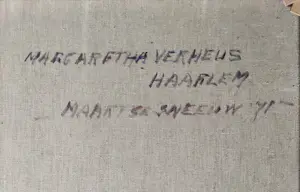 MARGARETHA VERHEUS
HAARLEM
MAARTSE SNEEUW '71